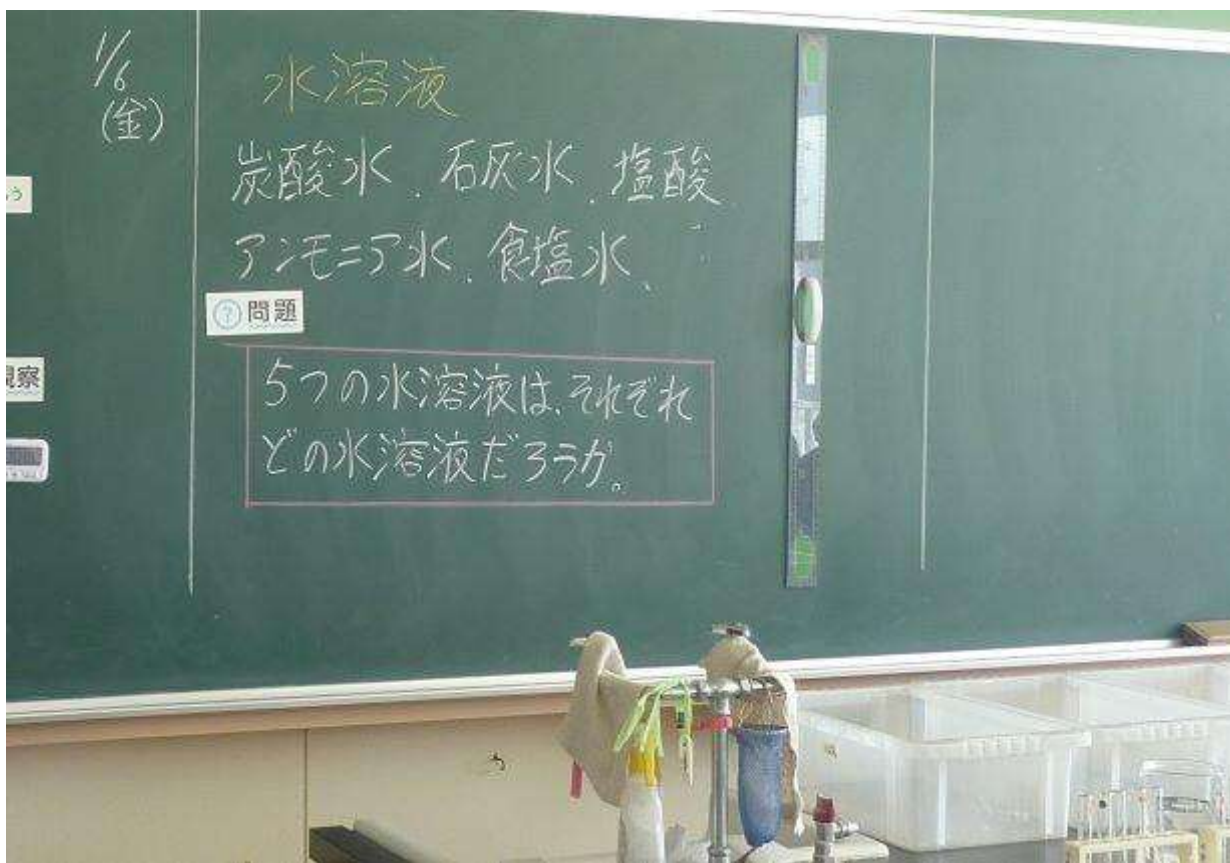 1/6
(金)
水溶液
炭酸水、石灰水、塩酸、
アンモニア水、食塩水、
問題
5つの水溶液は、それぞれ
どの水溶液だろうか。
う
観察